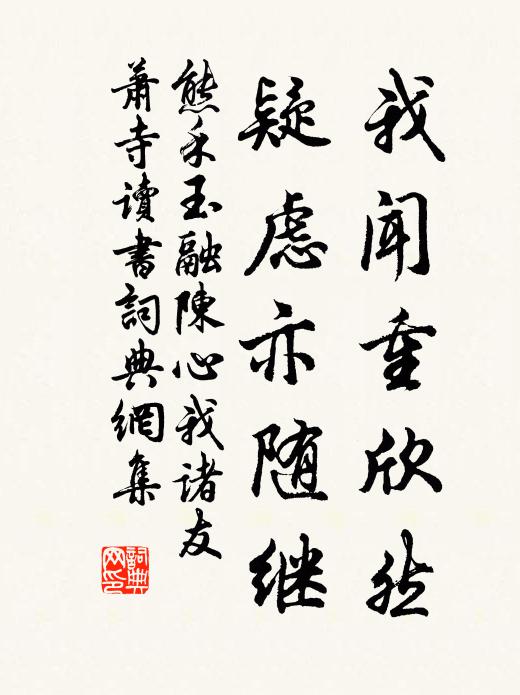 我闻重欣然
疑虑亦随继
熊禾玉融陳心我諸友
蕭寺讀書詞典網集
詞典网印